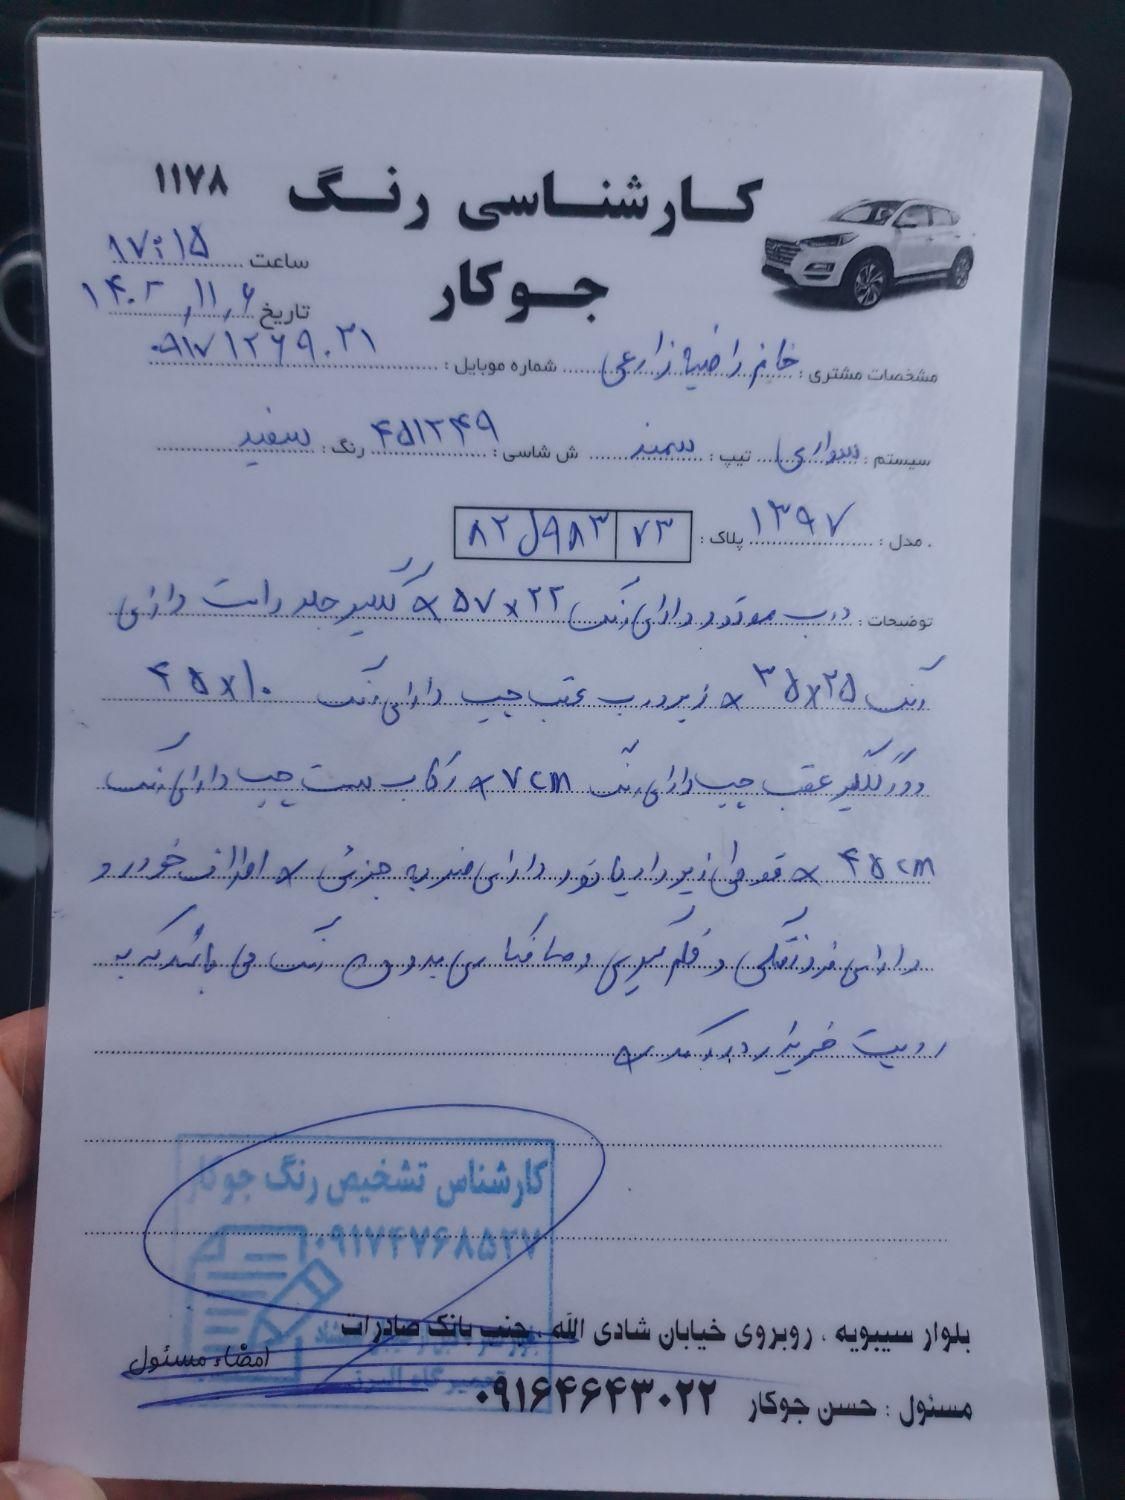 کارشناسی رنگ
۱۱۷۸
جوکار
ساعت ۱۷:۱۵
تاریخ ۱۴۰۲,۱۱,۶
مشخصات مشتری : خانم راضیه زارعی شماره موبایل : ۰۹۱۷۱۲۶۹۰۳۱
سیستم : سواری تیپ : سمند ش شاسی : ۴۵۱۲۴۹ رنگ : سفید
مدل : ۱۳۹۷ پلاک : ۸۲ل۹۸۳ ۷۳
توضیحات : درب موتور دارای رنگ ۲۲×۵۷ * گلگیر جلو راست دارای
رنگ ۲۵×۳۵ * زیر درب عقب چپ دارای رنگ ۱۰×۴۵
دور گلگیر عقب چپ دارای رنگ ۷cm * رکاب سمت چپ دارای رنگ
۴۵cm * قوطی زیر رادیاتور دارای ضربه جزئی * اطراف خودرو
دارای فرورفتگی و قلم گیری و صافکاری بدون رنگ می باشد که به
رویت خریدار رسید
کارشناس تشخیص رنگ جوکار
۰۹۱۷۴۷۶۸۵۲۷
بلوار سیبویه ، روبروی خیابان شادی الله ، جنب بانک صادرات
تعمیرگاه البرز
امضاء مسئول
مسئول : حسن جوکار ۰۹۱۶۴۶۴۳۰۲۲